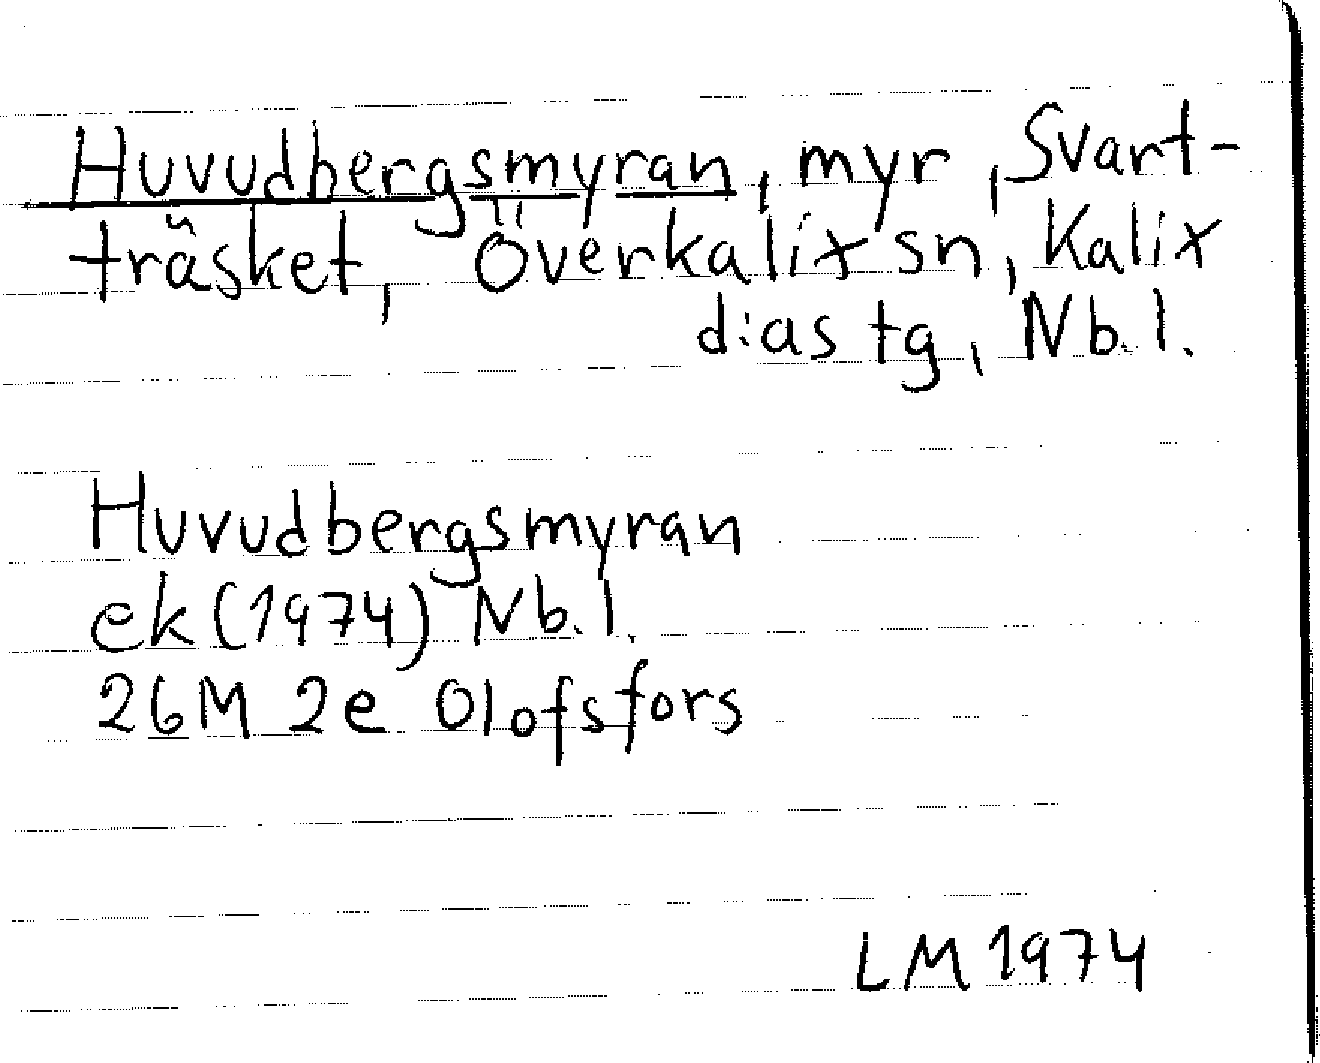 Huvudbergsmyran, myr, Svart-
träsket, Överkalix sn, Kalix
dias tg, Nb.l.
Huvudbergsmyran
ek (1974) Nb.l.
26M 2e Olofsfors
LM 1974